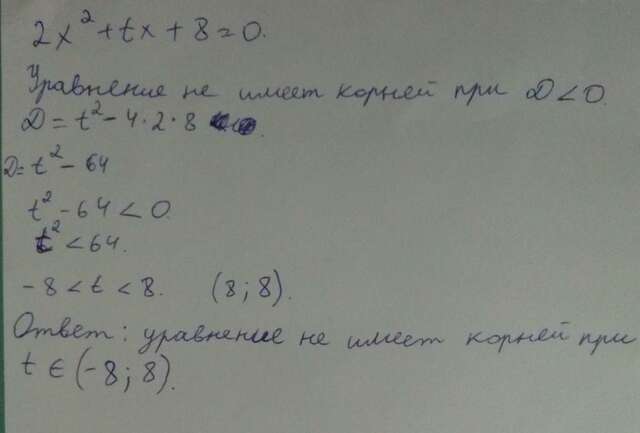 2x² + tx + 8 = 0.
Уравнение не имеет корней при D < 0.
D = t² - 4·2·8
D = t² - 64
t² - 64 < 0.
t² < 64.
-8 < t < 8. (8; 8).
Ответ: уравнение не имеет корней при
t ∈ (-8; 8).